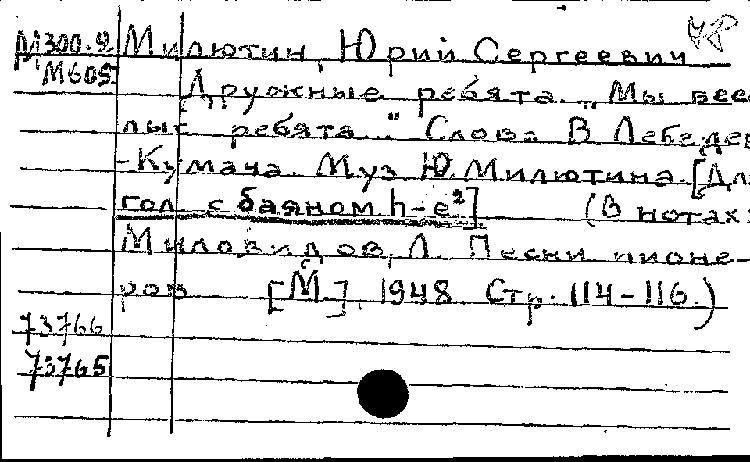 М300.2 Милютин, Юрий Сергеевич
М605
Дружные ребята. „Мы весе-
лые ребята..." Слова В. Лебедев
-Кумача. Муз. Ю. Милютина. [Для
гол. с баяном h-e²] (В нотах:
Миловидов, Л. Песни пионе-
ров [М], 1948. Стр. 114-116.)
73766
73765